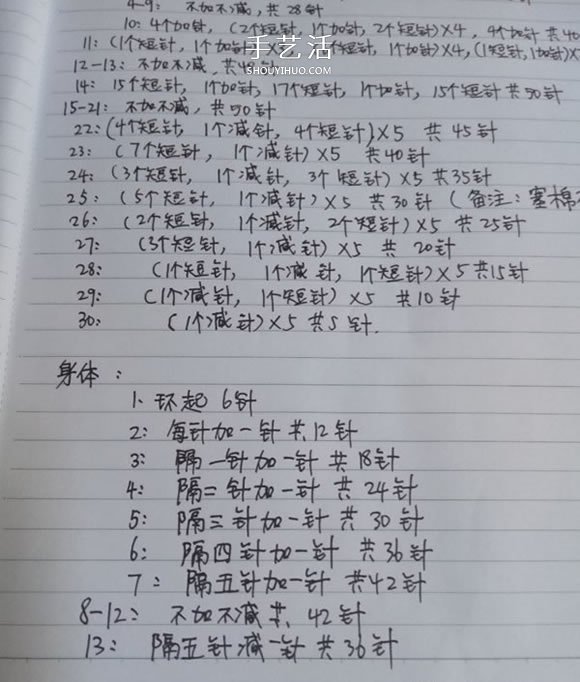 4-9: 不加不减,共28针
10: 4个加针, (2个短针,1个加针,2个短针)×4, 9个加针 共40
11: (1个短针,1个加针)× 个短针,1个加针)×4,(1短针,1加针)×
手艺活
SHOUYIHUO.COM
12-13: 不加不减,共48针
14: 15个短针, 1个加针, 17个短针, 1个加针, 15个短针 共50针
15-21: 不加不减, 共50针
22: (4个短针, 1个减针, 4个短针)×5 共45针
23: (7个短针, 1个减针)×5 共40针
24: (3个短针, 1个减针, 3个短针)×5 共35针
25: (5个短针, 1个减针)×5 共30针 (备注:塞棉
26: (2个短针, 1个减针, 2个短针)×5 共25针
27: (3个短针, 1个减针)×5 共20针
28: (1个短针, 1个减针, 1个短针)×5 共15针
29: (1个减针, 1个短针)×5 共10针
30: (1个减针)×5 共5针.
身体:
1. 环起 6针
2: 每针加一针 共12针
3: 隔一针加一针 共18针
4: 隔二针加一针 共24针
5: 隔三针加一针 共30针
6: 隔四针加一针 共36针
7: 隔五针加一针 共42针
8-12: 不加不减 共 42针
13: 隔五针减一针 共36针